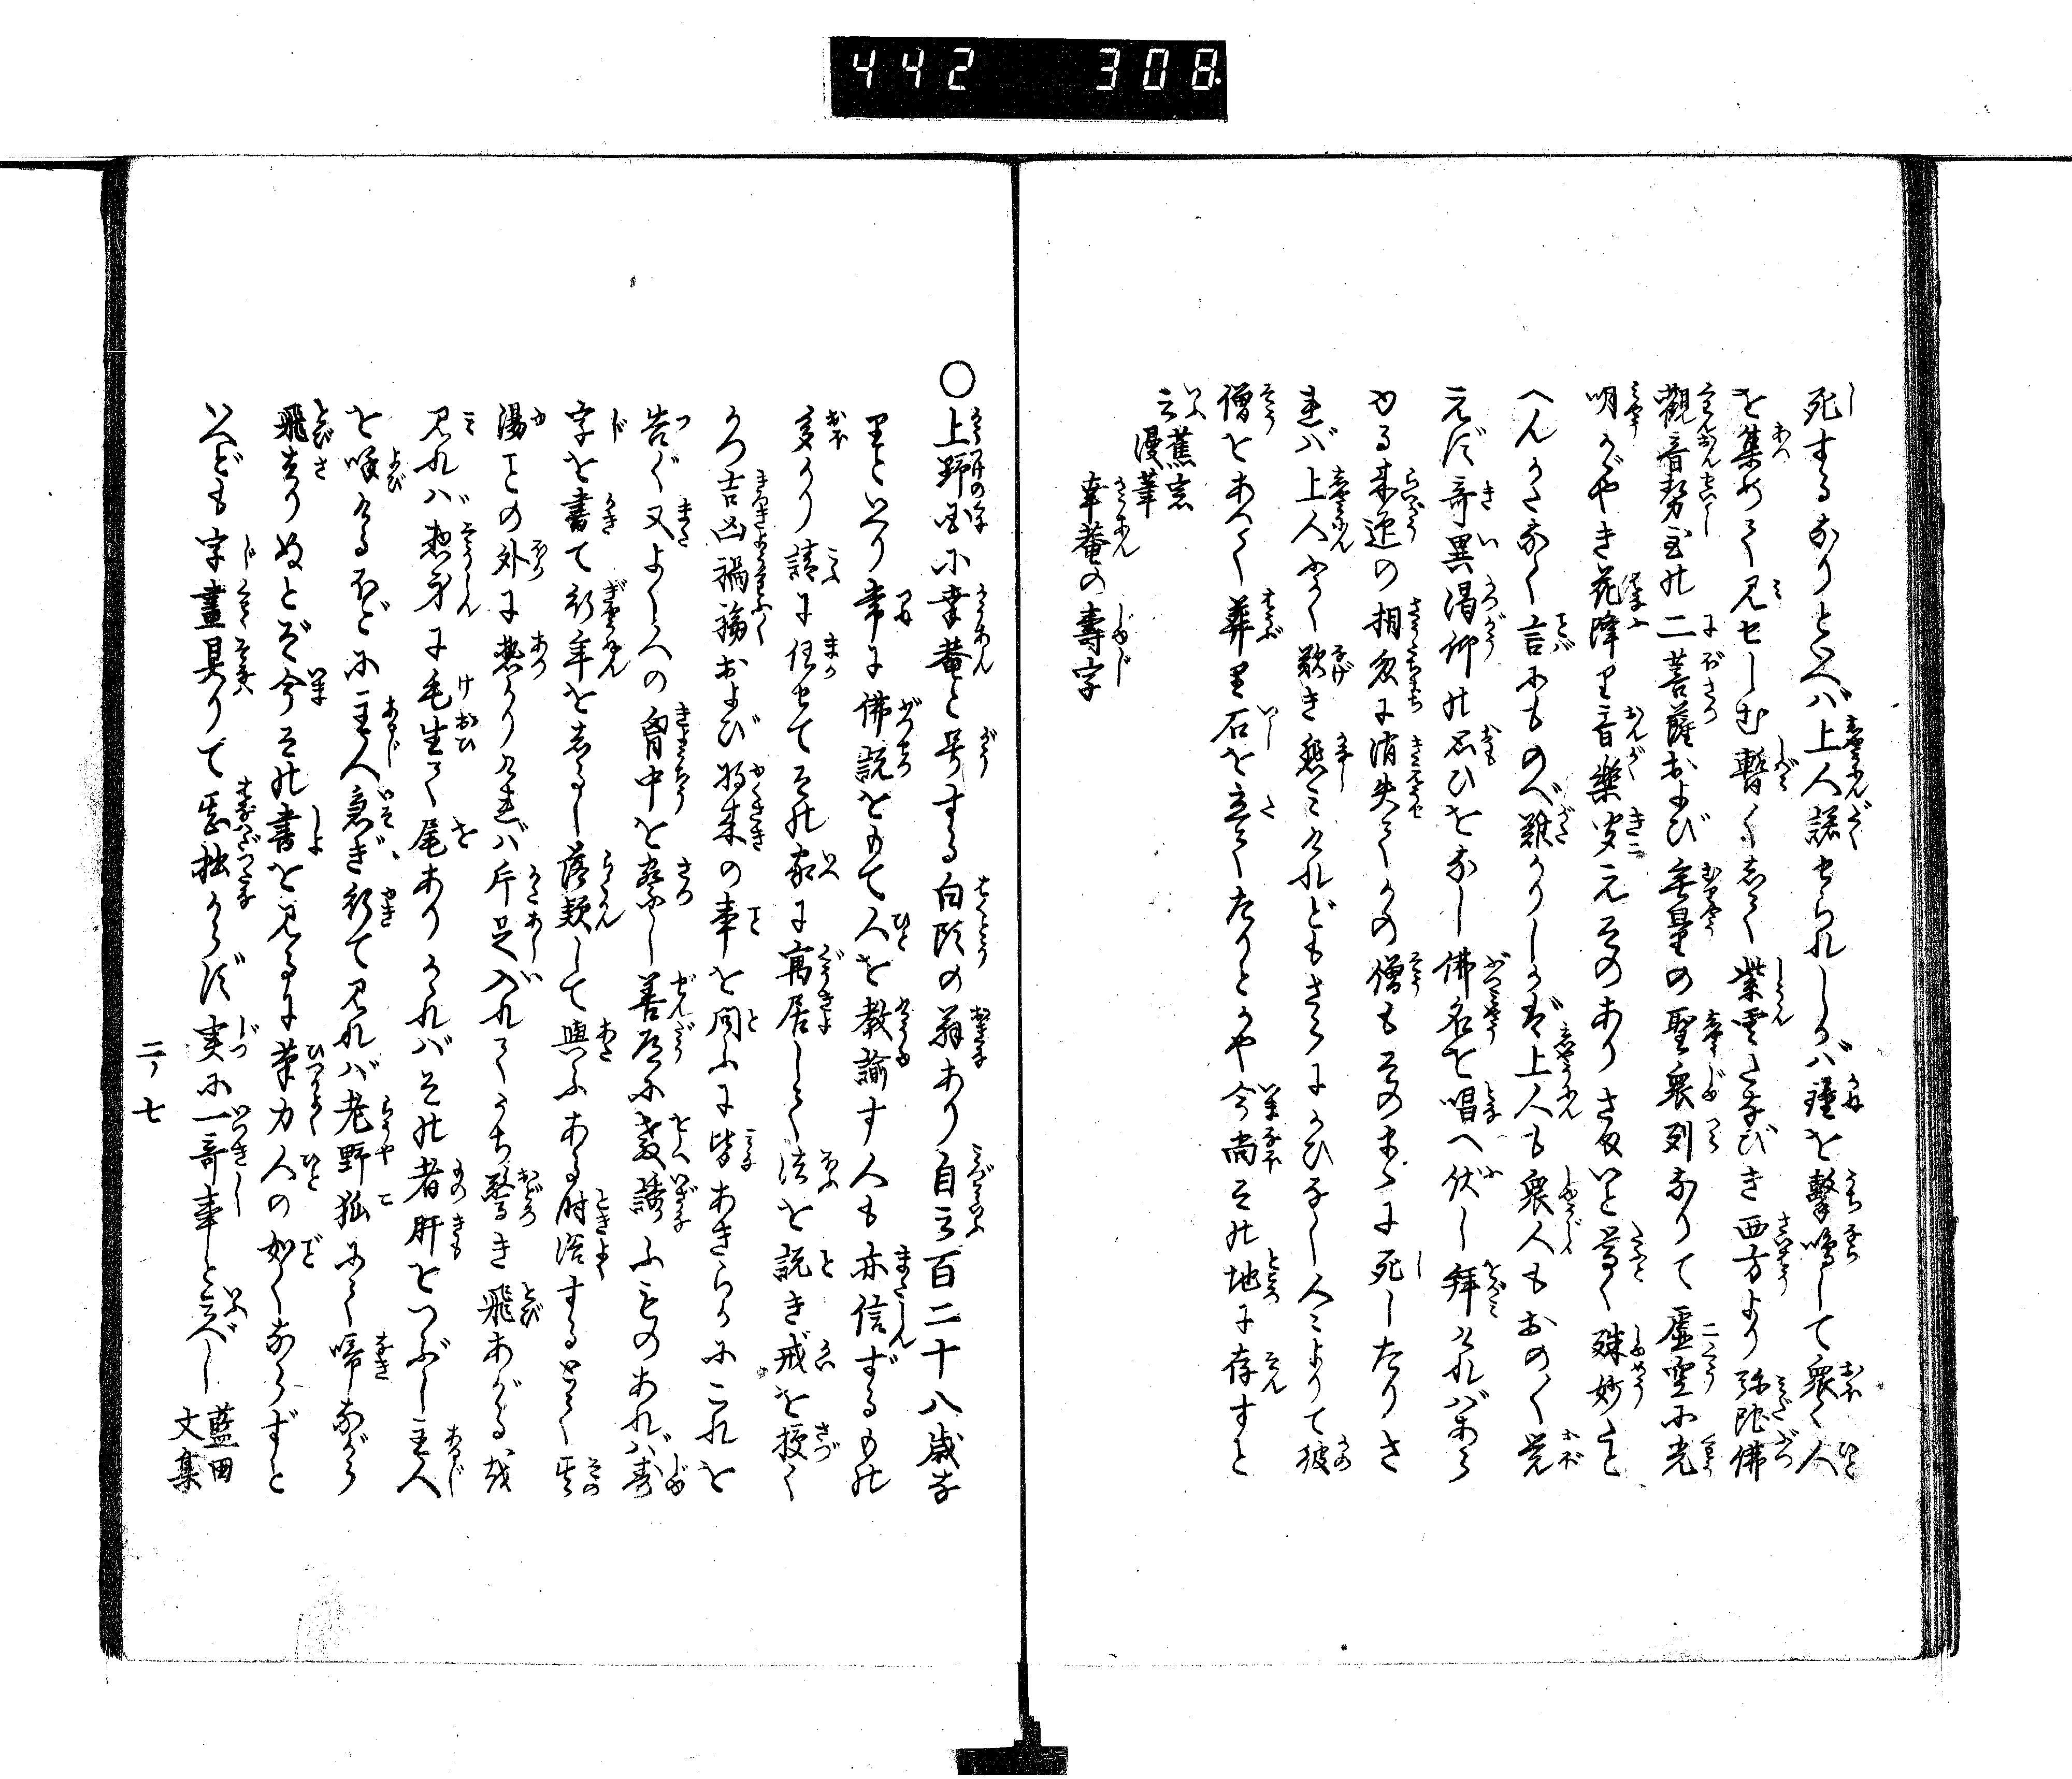 442 308
死するなりといへバ上人諾せられしかバ鐘を撃鳴して衆く人
を集めて見せしむ暫くして紫雲たなびき西方より弥陀佛
觀音勢至の二菩薩および無量の聖衆列なりて虚空に光
明かゞやき花降り音樂聞えそのありさまいと尊く殊妙たと
へんかたなく言にものべ難かりしかバ上人も衆人もおの〳〵覚
えず奇異渇仰の思ひをなし佛名を唱へ伏し拜けれバあら
ゆる来迎の相忽に消失てかの僧もそのまゝに死したりさ
れバ上人ふかく歎き愁ミけれどもさらにかひなし人ミよりて彼
僧をあつく葬り石を立てたりとかや今尚その地に存すと
云 蕉窓漫筆
幸菴の壽字
〇上野国に幸菴と号する白頭の翁あり自云百二十八歳な
りといへり常に佛説をもて人を教諭す人も亦信ずるもの
多かり請に任せてその家に寓居して法を説き戒を授く
かつ吉凶禍福および将来の事を問ふに皆あきらかにこれを
告ぐ又よく人の胷中を察し善道に教誘ふものあれバ寿
字を書て行年をしるし落款して與ふある時浴するとて其
湯ことの外に熱かりけれバ片足入れてうち驚き飛あがる哉
見れバ惣身に毛生て尾ありけれバその者肝をつぶし主人
を呼けるほどに主人急ぎ行て見れバ老野狐にて啼ながら
飛さりぬとぞ今その書を見るに筆力人の如くならずと
いへども字畫具りて甚拙からず実に一奇事と云べし 藍田文集
二ノ七